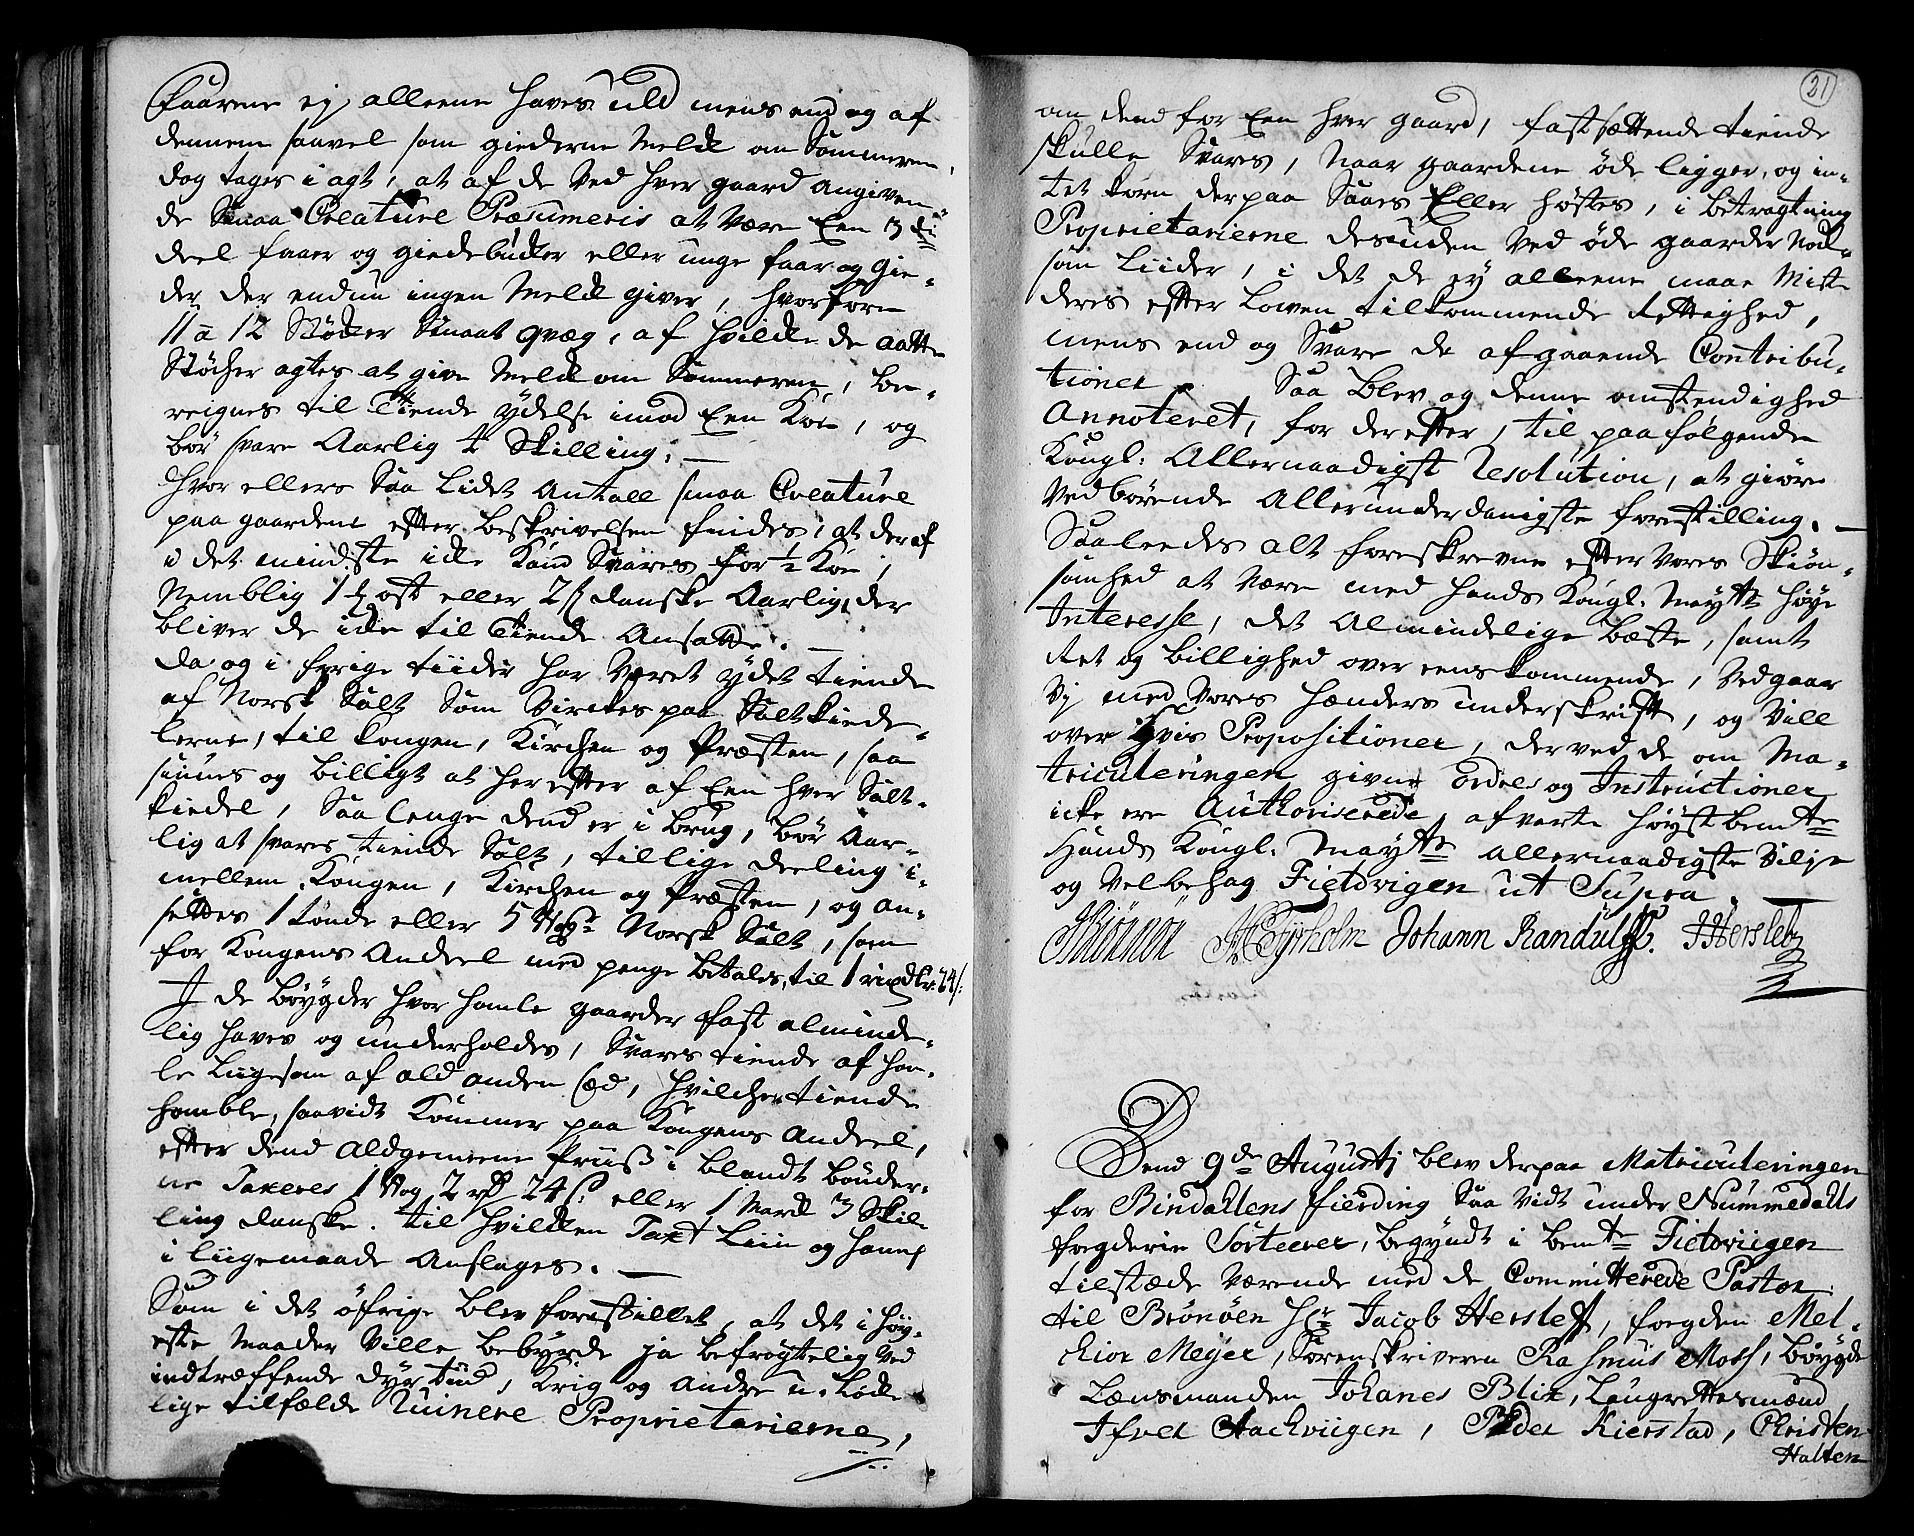 Faarene ej alleene haves uld mens end og af
dennem saavel som giederne Melk om Sommeren,
dog tages i agt, at af de ved hver gaard angiven-
de Smaa Creature Præsumeris at være Een 3die
deel faaer og giedebucker eller unge faar og gie-
der der endnu ingen Melk giver, hvorfore
11 a 12 Støcker Smaat qvæg, af hvilcke de aatte
Støcher agtes at give Melck om Sommeren, be-
reignes til Tiende ydelse imod Een Koe, og
bør svare Aarlig 4 Skilling. —
Hvor ellers saa lidet Antall smaa Creature
paa gaardene efter beskrivelsen findes, at deraf
i det mindste icke kand Svares for ½ Koe,
Nemblig 1 ℔ ost eller 2 ß danske Aarlig, der
bliver de icke til Tiende Ansatte. —
Da og i forige tiider har været ydet tiende
af Norsk Salt Som Virckes paa Saltkiede-
lerne, til kongen, Kirchen og Præsten, saa
siunes og billigt at her efter af Een hver Salt-
kiedel, Saa lenge dend er i brug, bør Aar-
lig at svares tiende Salt, til lige deeling i-
mellem Kongen, Kirchen og Præsten, og an-
settes 1 tønde eller 5 Vog Norsk Salt, som
for Kongens Andeel med penge betales, til 1 rixdlr: 24 ß:
I de bøygder hvor homle gaarder fast alminde-
lig haves og underholdes, Svares tiende af hom-
le liigesom af ald anden sæd, hvilchen tiende
homble, saavidt kommer paa Kongens Andeel,
efter dend Aldgemeene Priiß i blandt bønder-
ne Taxeres 1 Vog 2 rd 24 ß. eller 1 Mark 3 Skil-
ling danske. til hvilcken Taxt Liin og hamp
i liigemaade Anslages. —
Som i det øfrige blev forestillet, at det i høy-
este Maader ville bebyrde ja befrygtelig ved
indtræffende dyr tiid, krig og andre u-lycke-
lige tilfælde Ruinere Proprietarierne,
21
om dend for Een hver gaard, fastsættende tiende
skulle Svares, naar gaardene øde ligger, og in-
tet korn derpaa Saaes Eller høstes, i betragtning
Proprietarierne desuden ved øde gaarder nock-
som Liider, i det de ey alleene maae Miste
deres efter loven tilkommende rettighed,
mens end og Svare de afgaaende Contribu-
tioner. Saa blev og denne omstendighed
Annoteret, for derefter, til paafølgende
Kongl: Allernaadigst Resolution, at giøre
Vedbørende Allerunderdanigste forestilling. —
Saaledes alt foreskrevne efter vores Skiøn-
somhed at være med hands Kongl. Maytts høye
Interesse, det Almindelige bæste, samt
ret og billighed over eenskommende, Vedgaar
Vj med vores hænders underskrift, og Vill
over hvis Propositioner, derved de om Ma-
triculeringen givne ordres og Instructioner
icke ere Authoriserede, afvarte høyst bemte
Hands Kongl. Maytts allernaadigste Vilje
og Velbehag Fieldvigen ut Supra.
JBiönnör NTyrholm Johann Randulff. JHersleb
Dend 9de Augustj blev derpaa Matriculeringen
for Bindallens fierding Saa vidt under Nummedahls
fogderie Sorteerer, begyndt i bemte Fieldviigen
tilstæde værende med de Committerede Pastor
til Brønøen Hr Jacob Hersleff, fogden Mel-
chior Meyer, Sorenskriveren Rasmus Moss, bøygde
Lænsmanden Johanes Blix, Laugrettesmænd
Ifver Aackviigen, Peder Kierstad, Christen
Halten